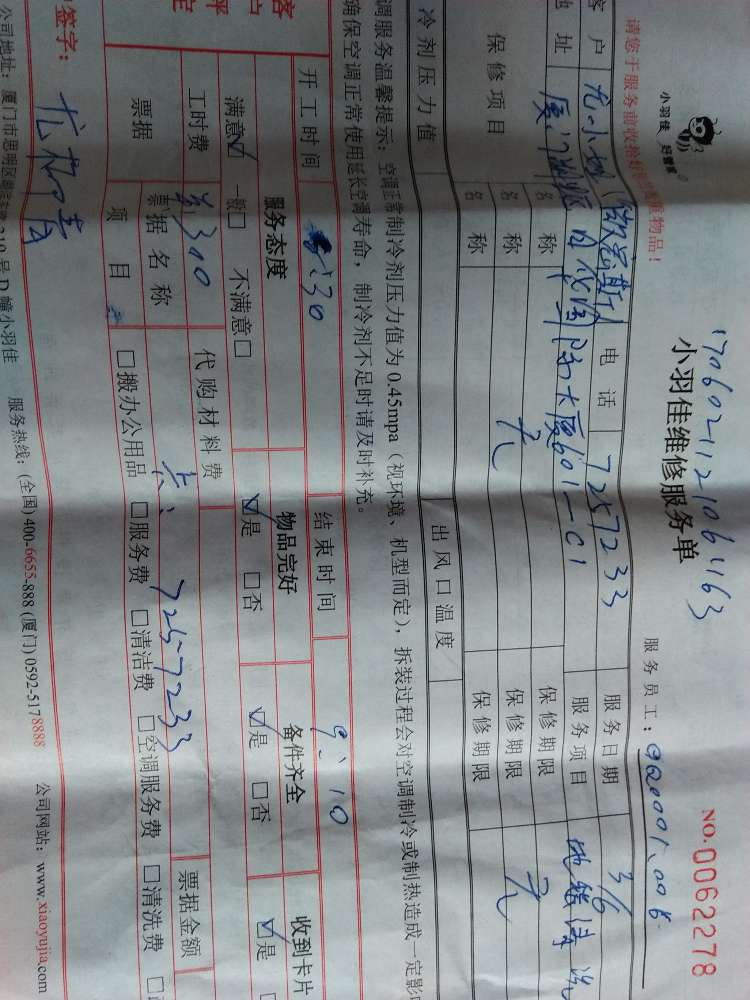 小羽佳 好管家
请您于服务前收拾好
物品!
170602112106463
小羽佳维修服务单
NO.0062278
服务员工:
客户 尤小姐 电话 7257233 服务日期 3/6
地址 厦门 大厦601-C1 服务项目 地毯清洗
保修项目 名称 保修期限
名称 无 保修期限 无
名称 保修期限
冷剂压力值 出风口温度
调服务温馨提示:空调正常制冷剂压力值为0.45mpa(视环境、机型而定),拆装过程会对空调制冷或制热造成一定影
确保空调正常使用延长空调寿命,制冷剂不足时请及时补充。
开工时间 8:30 结束时间 9:10
服务态度 物品完好 备件齐全 收到卡片
满意☑ 一般□ 不满意□ ☑是 □否 ☑是 □否 ☑是
工时费 300 代购材料费
票据 票据名称 7257233 票据金额
项目 □搬办公用品 □服务费 □清洁费 □空调服务费 □清洗费
签字:
公司地址:厦门市思明区 219号D幢小羽佳 服务热线:(全国)400-6655-888 (厦门)0592-5178888 公司网站:www.xiaoyujia.com